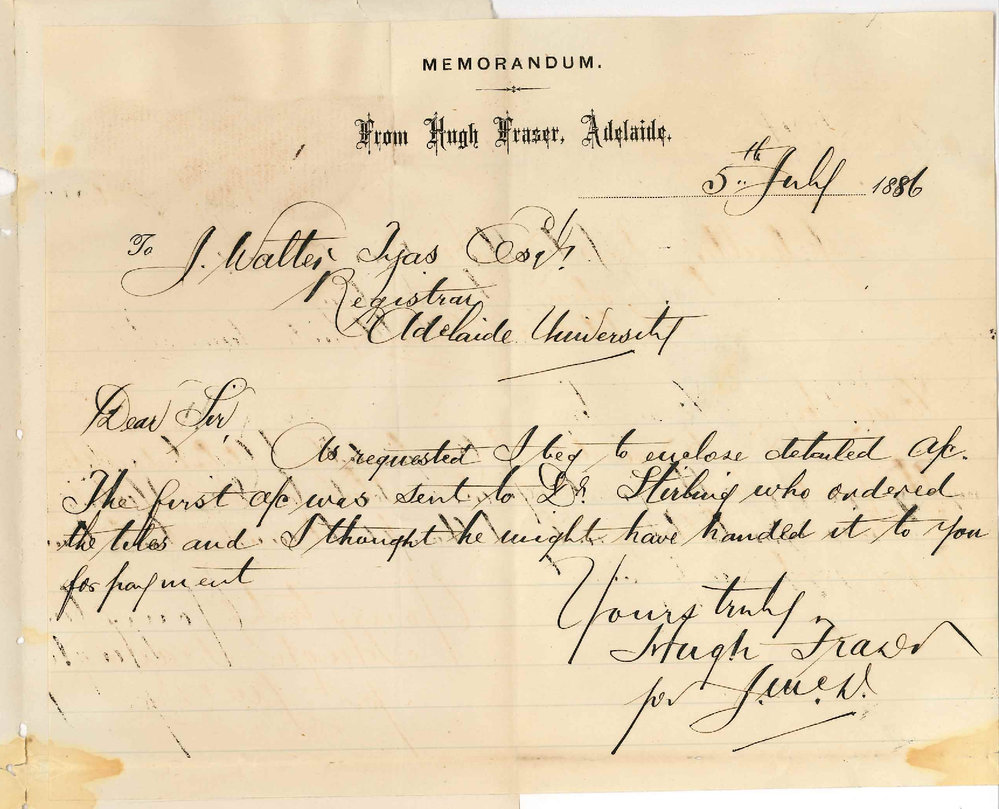 MEMORANDUM.
From Hugh Fraser, Adelaide.
5th July 1886
To J. Walter Tyas Esqr.
Registrar
Adelaide University
Dear Sir
As requested I beg to enclose detailed a/c.
The first a/c was sent to Dr. Stirling who ordered
the tiles and I thought he might have handed it to you
for payment
Yours truly
Hugh Fraser
per J. McD.